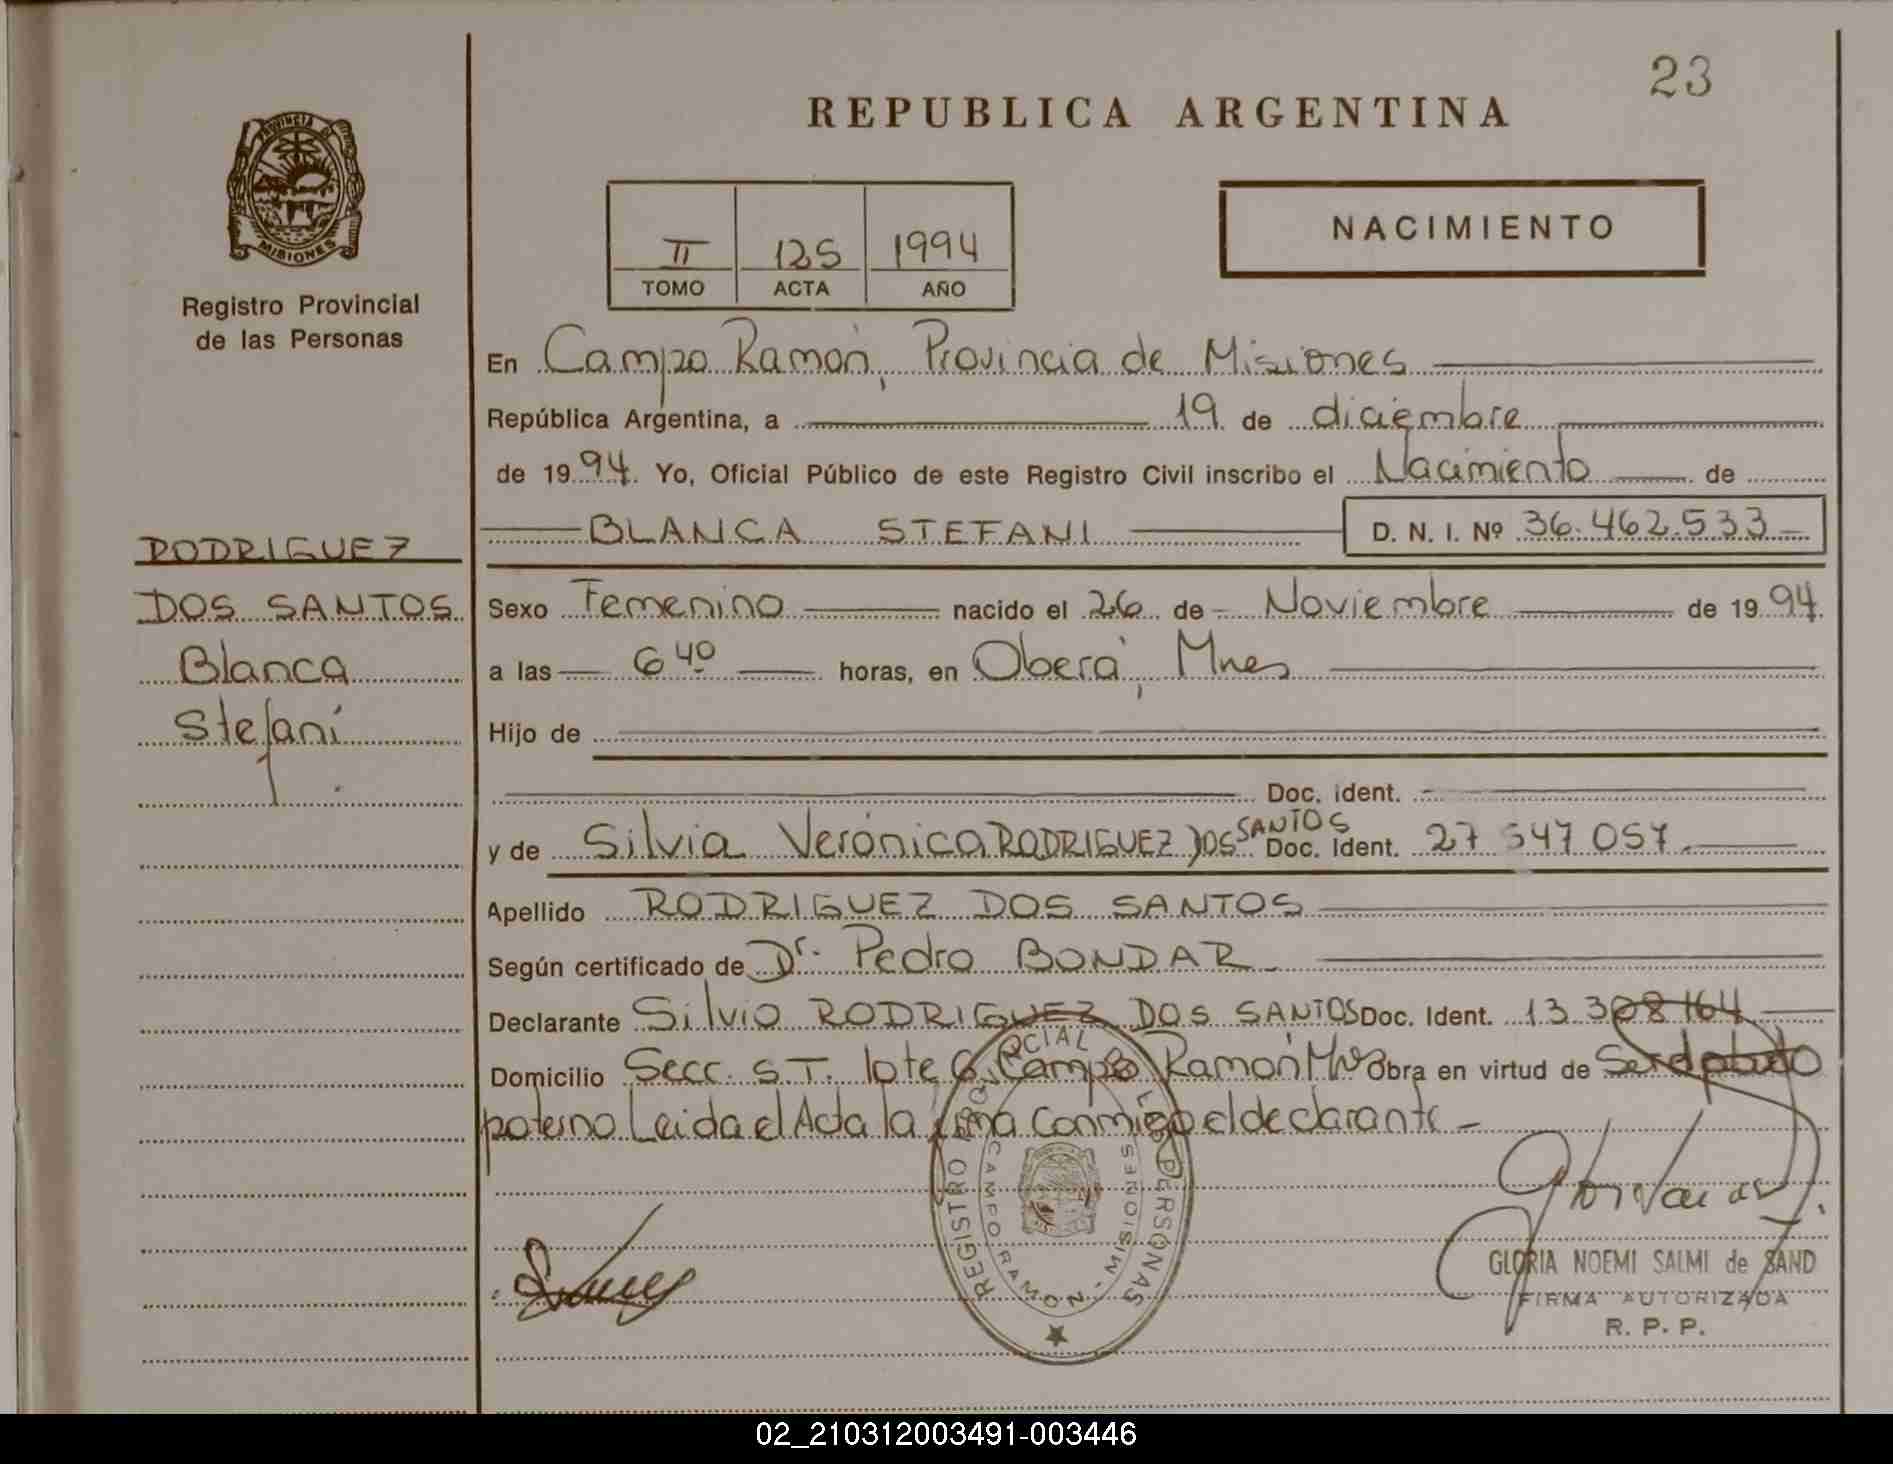 23
REPUBLICA ARGENTINA
PROVINCIA DE
MISIONES
Registro Provincial
de las Personas
II 125 1994
TOMO ACTA AÑO
NACIMIENTO
En Campo Ramón, Provincia de Misiones
República Argentina, a 19 de diciembre
de 1994. Yo, Oficial Público de este Registro Civil inscribo el Nacimiento de
BLANCA STEFANI D. N. I. Nº 36.462.533
RODRIGUEZ
DOS SANTOS
Blanca
Stefani
Sexo Femenino nacido el 26 de Noviembre de 1994.
a las 6 40 horas, en Oberá, Mnes
Hijo de
Doc. ident.
y de Silvia Verónica RODRIGUEZ DOS SANTOS Doc. Ident. 27 547 057
Apellido RODRIGUEZ DOS SANTOS
Según certificado de Dr. Pedro BONDAR
Declarante Silvio RODRIGUEZ DOS SANTOS Doc. Ident. 13 308 164
Domicilio Secc. S.T. lote 6 Campo Ramón Mnes Obra en virtud de Ser el abuelo
paterno Leida el Acta la firma conmigo el declarante
REGISTRO PERSONAS
CAMPO RAMON - MISIONES
GLORIA NOEMI SALMI de SAND
FIRMA AUTORIZADA
R. P. P.
02_210312003491-003446